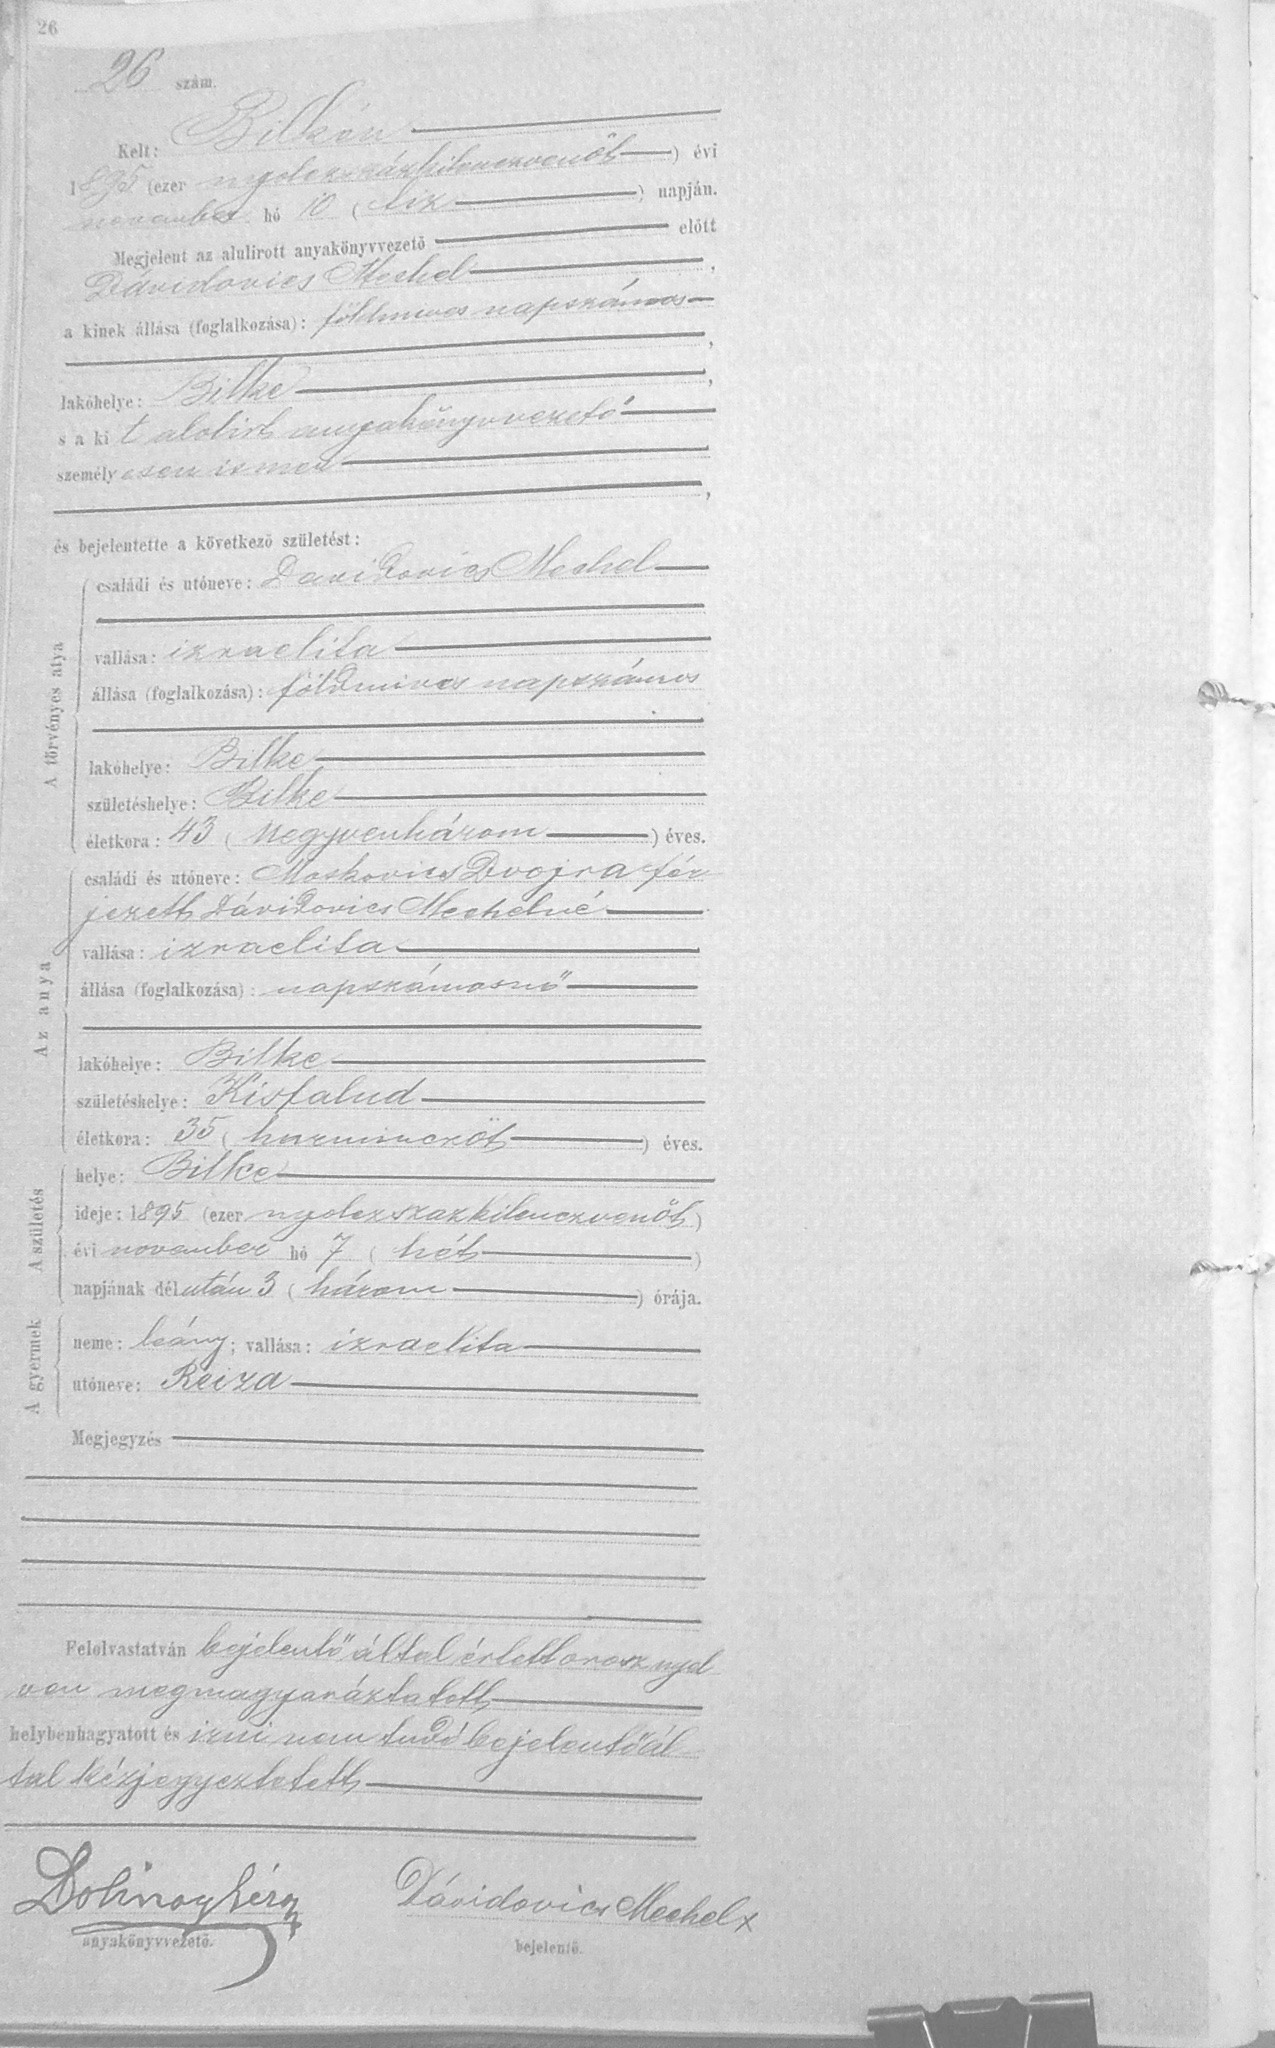 26
26 szám.
Kelt: Bilkén
1895 (ezer nyolczszázkilenczvenöt) évi
november hó 10 (tiz) napján.
Megjelent az alulirott anyakönyvvezető előtt
Dávidovics Mechel,
a kinek állása (foglalkozása): földmives napszámos
,
lakóhelye: Bilke,
s a kit alolirt anyakönyvvezető
személyesen ismer
,
és bejelentette a következő születést:
A törvényes atya
családi és utóneve: Davidovics Mechel
vallása: izraelita
állása (foglalkozása): földmives napszámos
lakóhelye: Bilke
születéshelye: Bilke
életkora: 43 (negyvenhárom) éves.
Az anya
családi és utóneve: Moskovics Dvojra fér
jezett Dávidovics Mechelné
vallása: izraelita
állása (foglalkozása): napszámosnő
lakóhelye: Bilke
születéshelye: Kisfalud
életkora: 35 (harminczöt) éves.
A születés
helye: Bilke
ideje: 1895 (ezer nyolczszazkilenczvenöt)
évi november hó 7 (hét)
napjának délután 3 (három) órája.
A gyermek
neme: leány; vallása: izraelita
utóneve: Reiza
Megjegyzés
Felolvastatván bejelentő által értett orosz nyel
ven megmagyaráztatott
helybenhagyatott és irni nem tudó bejelentő ál
tal kézjegyeztetett
Dávidovics Mechel x
anyakönyvvezető.
bejelentő.